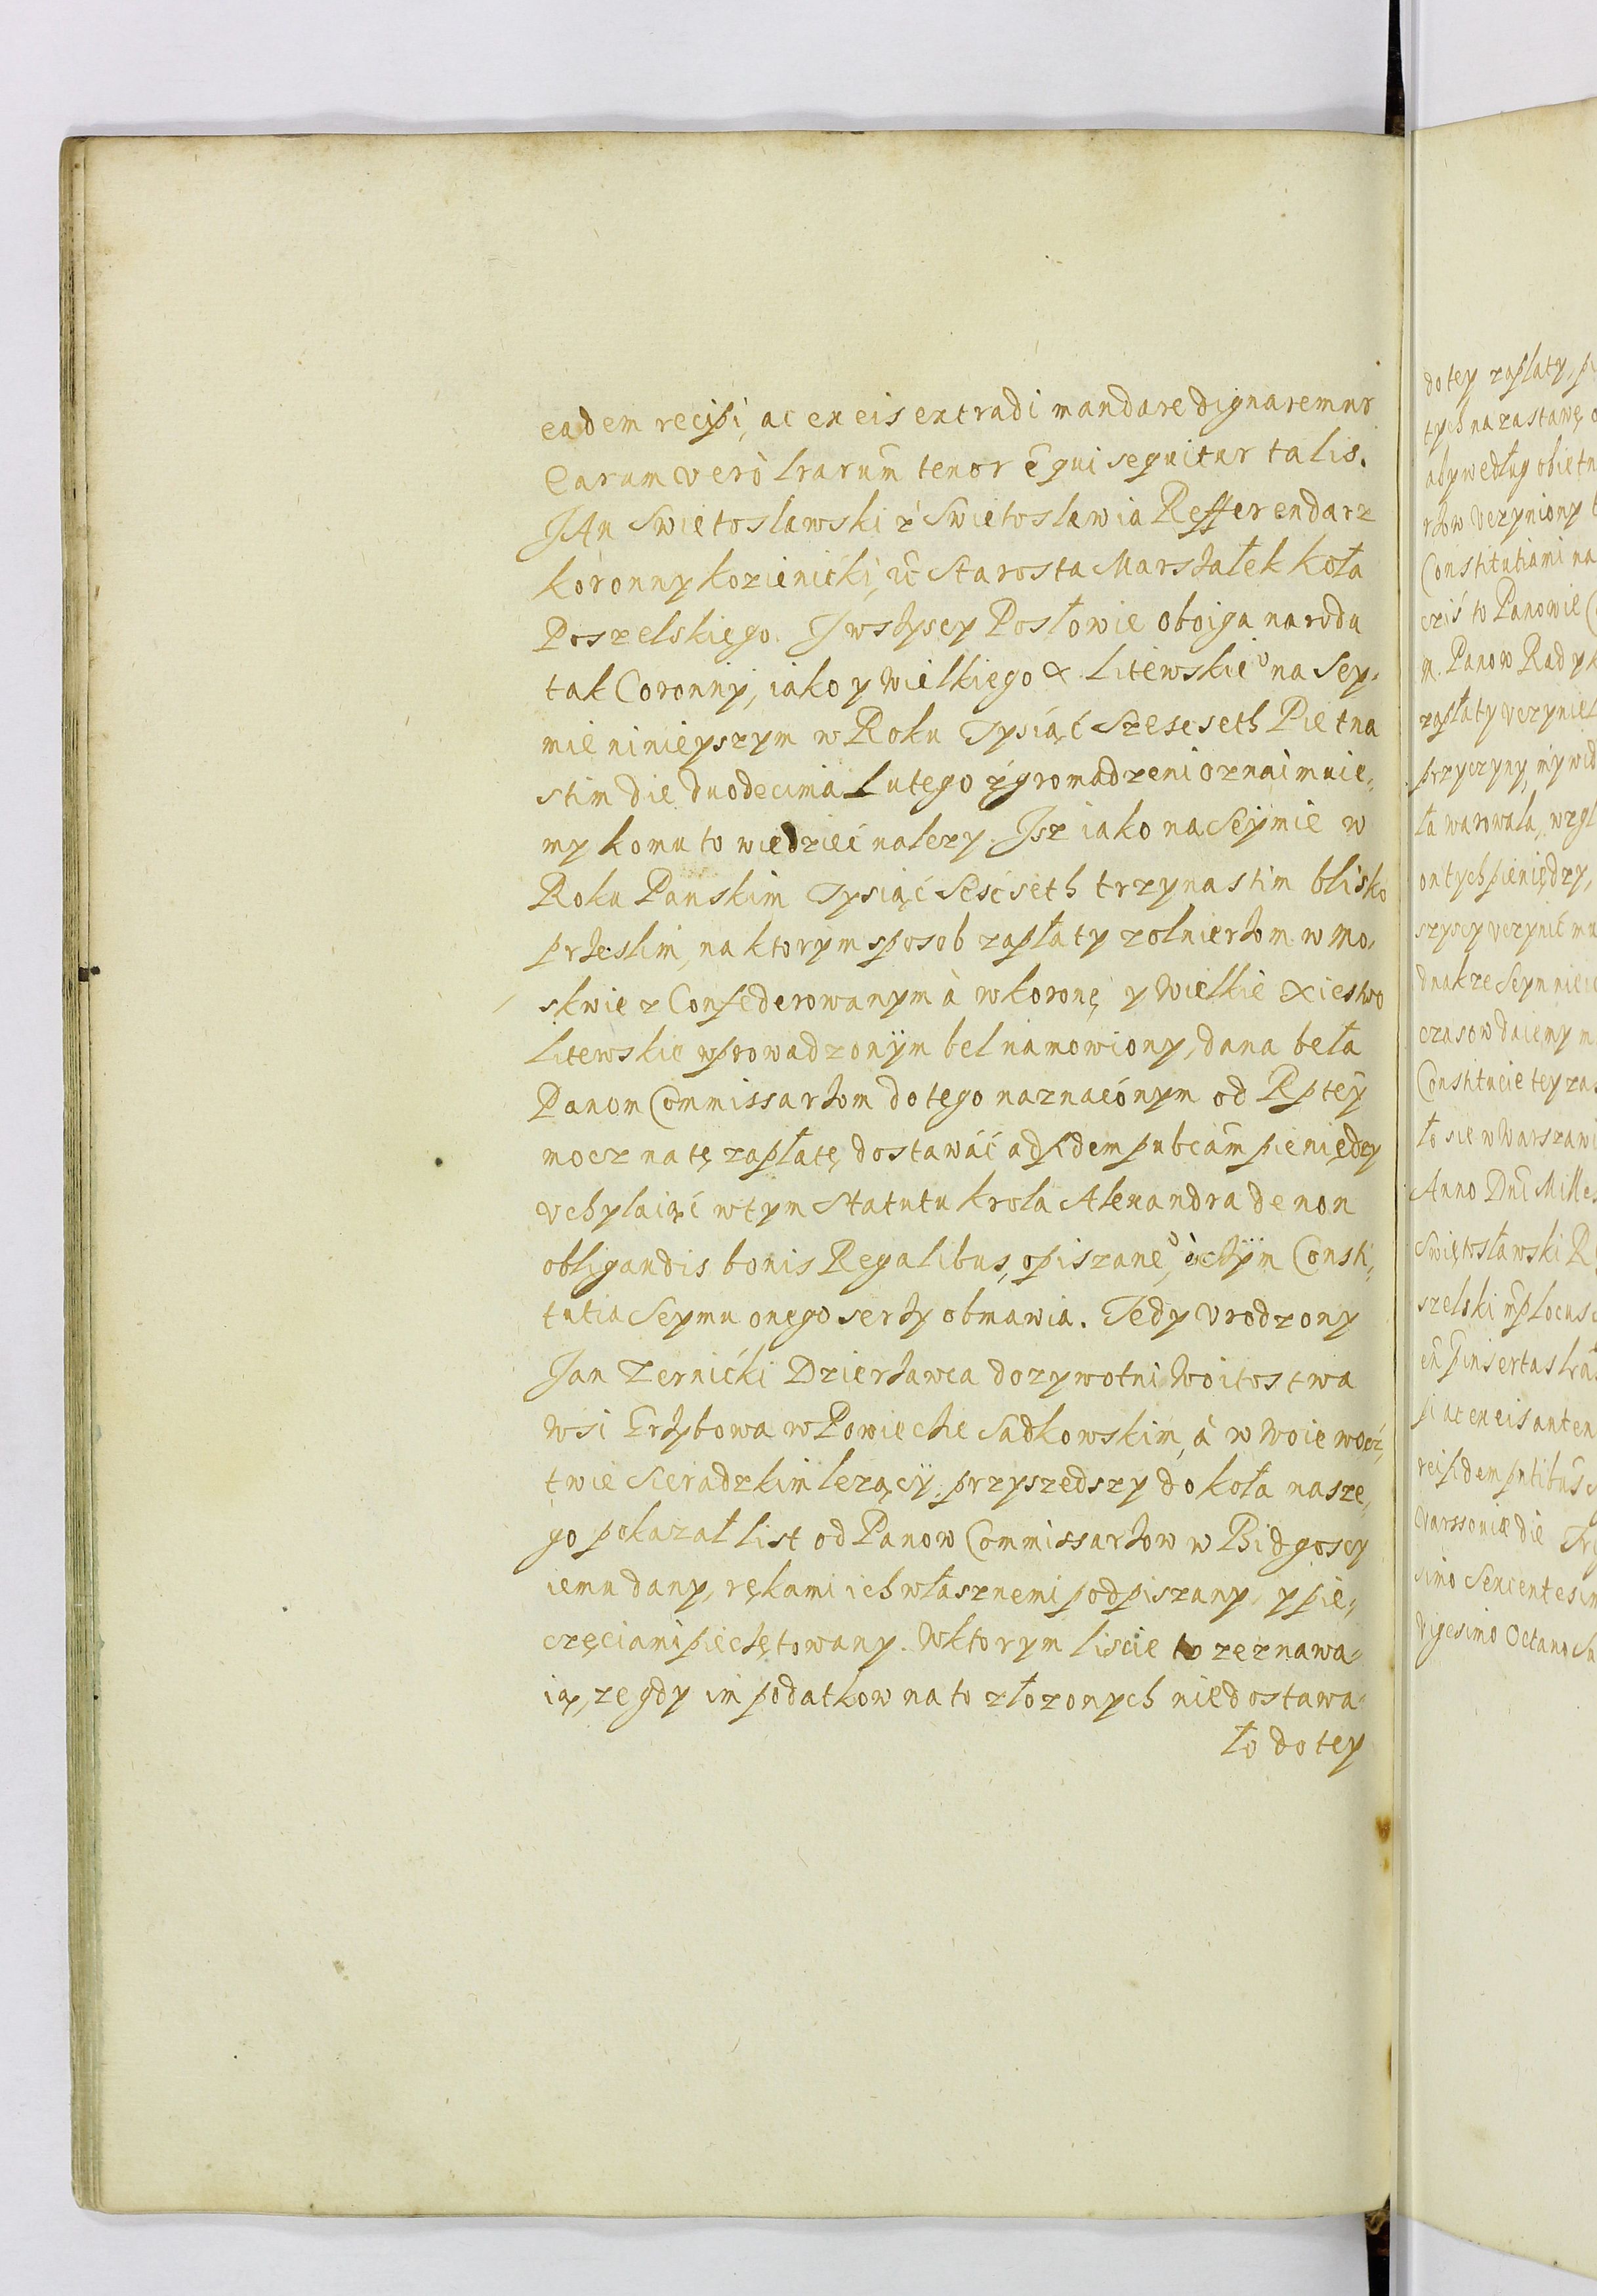 eadem recipi, ac ex eis extradi mandare dignaremur
Earum verò lrarum tenor e qui sequitur talis.
JAn Swietoslawski z Swietoslawia Refferendarz
koronny kozienićki, ić Starosta Marszałek koła
Poszelskiego. J wszyscy Posłowie oboiga narodu
tak Coronny, iako y Wielkiego X Litewskieº na Sey-
mie ninieyszym w Roku Tysiąć Szescseth Pietna
stim die duodecima Lutego zgromadzeni oznaimuie-
my komu to wiedzieć nalezy. Jsz iako na Seymie w
Roku Panskim Tysiąć Sescseth trzynastim blisko
przeslim, na ktorym sposob zapłaty zolnierzom w Mo-
skwie z Confederowanym à w koronę y Wielkie Xiestwo
Litewskie wprowadzonÿm bel namowiony, dana beła
Panom Commissarzom do tego naznaćonym od Rptey
mocz na tę zapłatę dostawáć ad fidem pubcam pieniędzy
vchylaiąć w tym Statutu krola Alexandra de non
obligandis bonis Regalibus, opiszaneº, o czÿm Consti-
tutia Seymu onego serzy obmawia. Tedy Vrodzony
Jan Zernićki Dzierzawca dozywotni Woitostwa
Wsi Grzybowa w Powieche Sadkowskim, à w Woiewodz-
twie Sieradzkim lezący, przyszedszy do koła nasze-
go pokazał list od Panow Commissarzow w Bidgoscy
iemu dany, rękami ich własznemi podpiszany, y pie-
częciami piechętowany. W ktorym liscie to zeznawa-
ią, ze gdy im podatkow na to złozonych niedostawa-
ło do tey
do tey zapłaty, pi
tych na zastawę o
aby według obietn
rzow vczyniony t
Constitutiami na
cziś to Panowie C
m. Panow Rad y k
zapłaty vczyniel
przyczyny, my wid
ła warowala, wzgl
on tych pieniędzy,
szyscy vczynić mu
dnakze Seym nie
czasow daiemy m
Constitucie tey za
ło sie w Warszawi
Anno Dni Milles
Swiętosławski R
szelski mp locus
si ac ex eis auten
Varssoniæ die
simo Sexcentesim
Vigesimo Octano